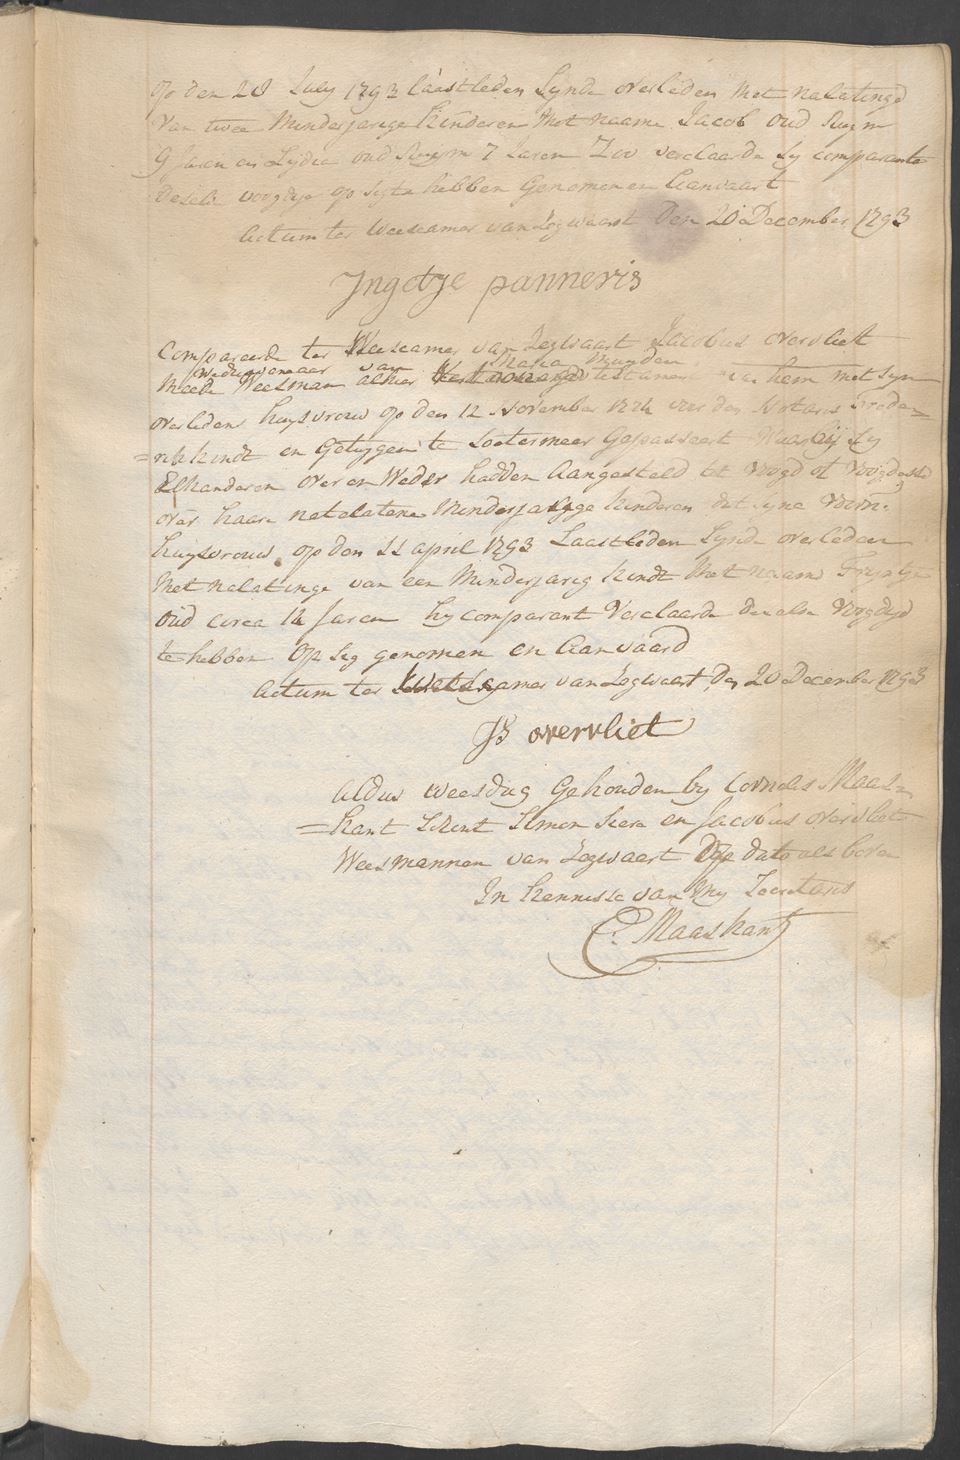 op den 28 July 1793 laastleden Synde overleden Met nalatinge
van twee Minderjarige Kinderen Met naame Jacob oud Ruym
9 Jaren en Lydia oud Ruym 7 Jaren Zoo verclaarde Sy comparante
deselve voogdye op Sig te hebben Genomen en Aanvaart
Actum ter Weescamer van Zegwaart Den 20 December 1793
Ingetje panneris
Compareerde ter Weescamer van Zegwaart Jacobus overvliet
Weduwenaar van Maria
Meede Weesman alhier testament van hem met Syn
overledene huysvrouw op den 12 November voor den Notaris Frede-
=rik kindt en Getuygen te Soetermeer Gepasseert Waar bij Sy
Elkanderen over en Weder hadden Aangesteld tot voogd of voogdesse
over haare natelatene Minderjarige kinderen dat Syne voorn.
huysvrouw op den 11 april 1793 Laastleden Synde overleden
Met nalatinge van een Minderjarig kindt Met naame Tryntje
oud circa 12 Jaren hy comparant verclaarde dezelve voogdyd
te hebben Op Sig genomen en Aanvaard
Actum ter camer van Zegwaart den 20 December 1793
Js overvliet
Aldus weesdag Gehouden by Cornelis Maas-
=kant Schout Simon en Jacobus overvliet
Weesmannen van Zegwaart Op dato als boven
In kennisse van My Secretaris
C. Maaskant